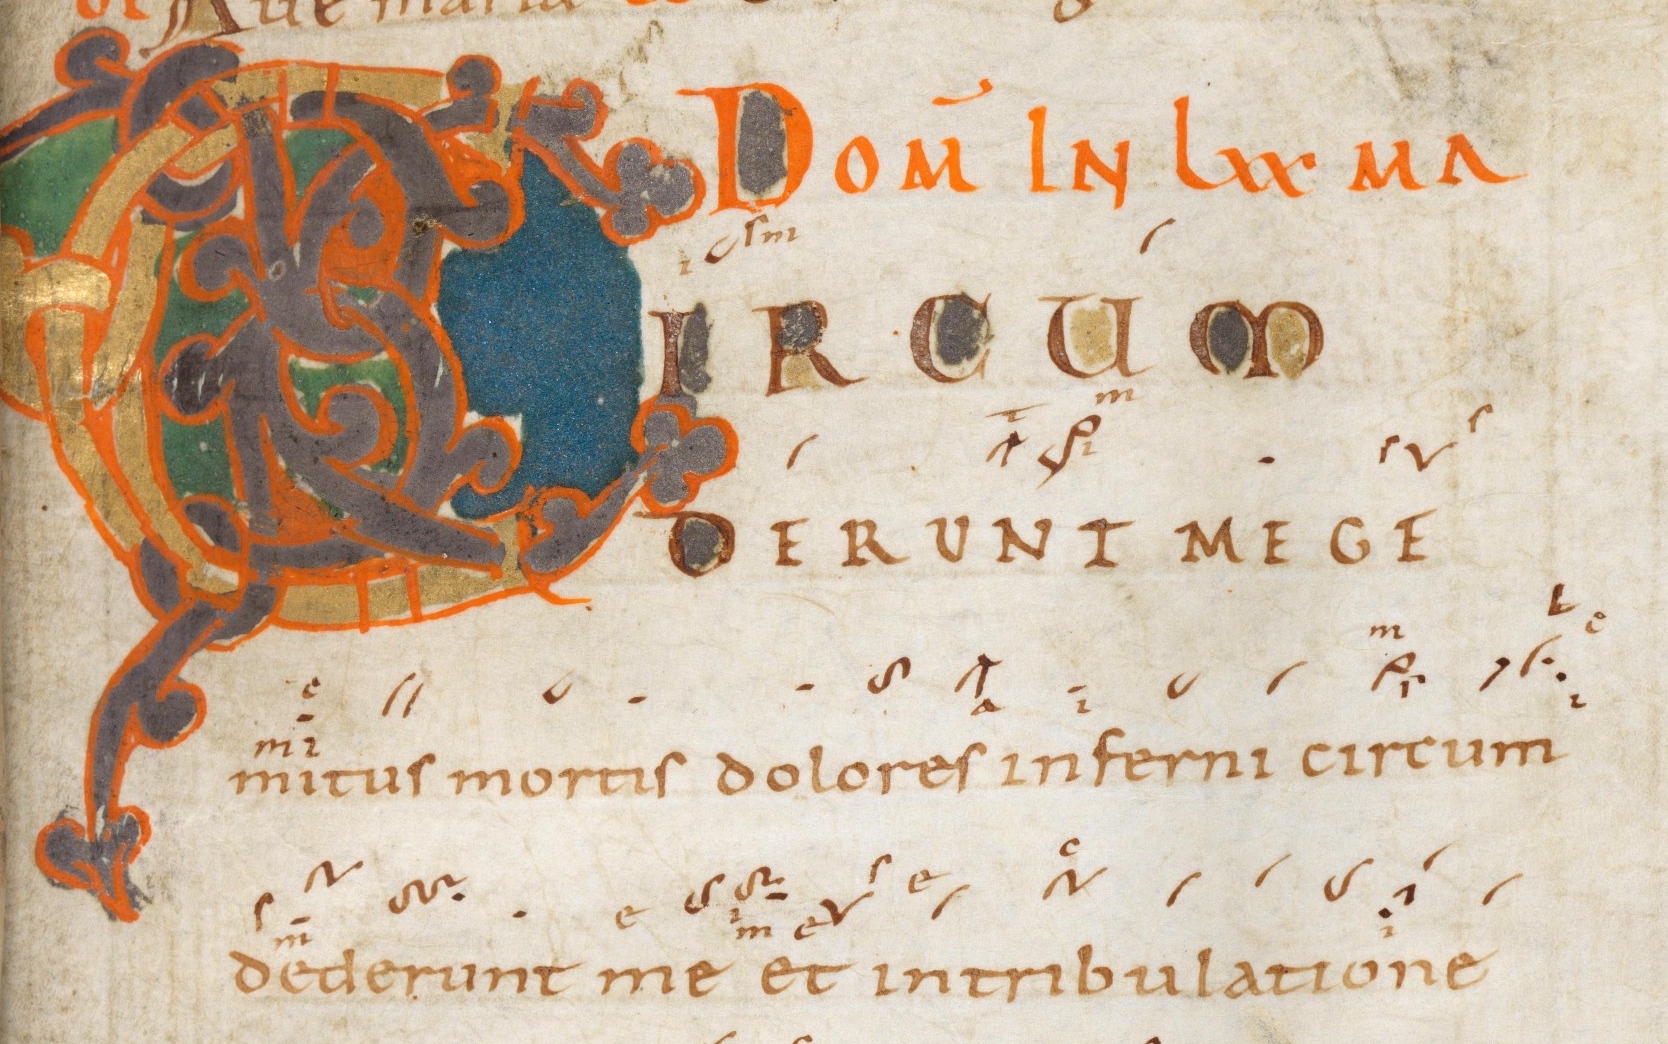 Aue maria
Dom̄ in lxx ma
CIRCUM
DERUNT ME GE
mitus mortis dolores inferni circum
dederunt me et in tribulatione